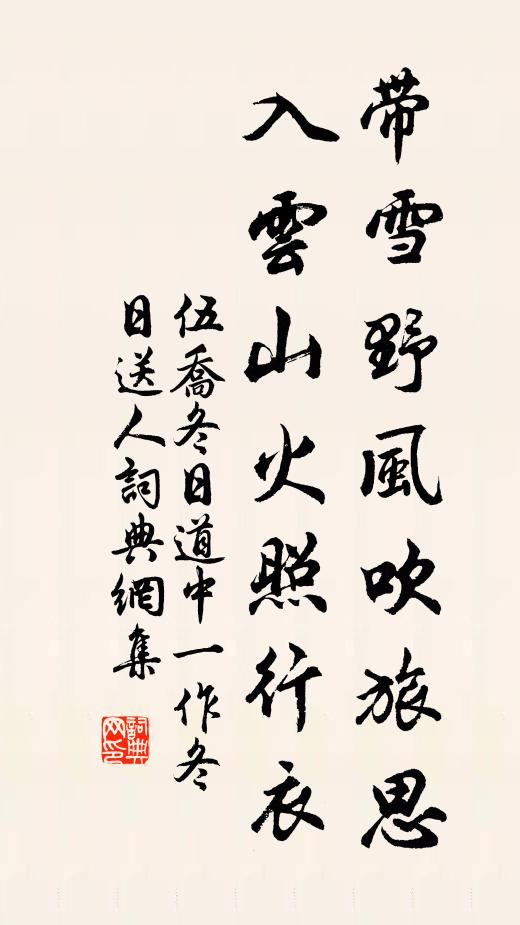 帶雪野風吹旅思
入雲山火照行衣
伍喬冬日道中一作冬
日送人詞典網集
詞典
网印